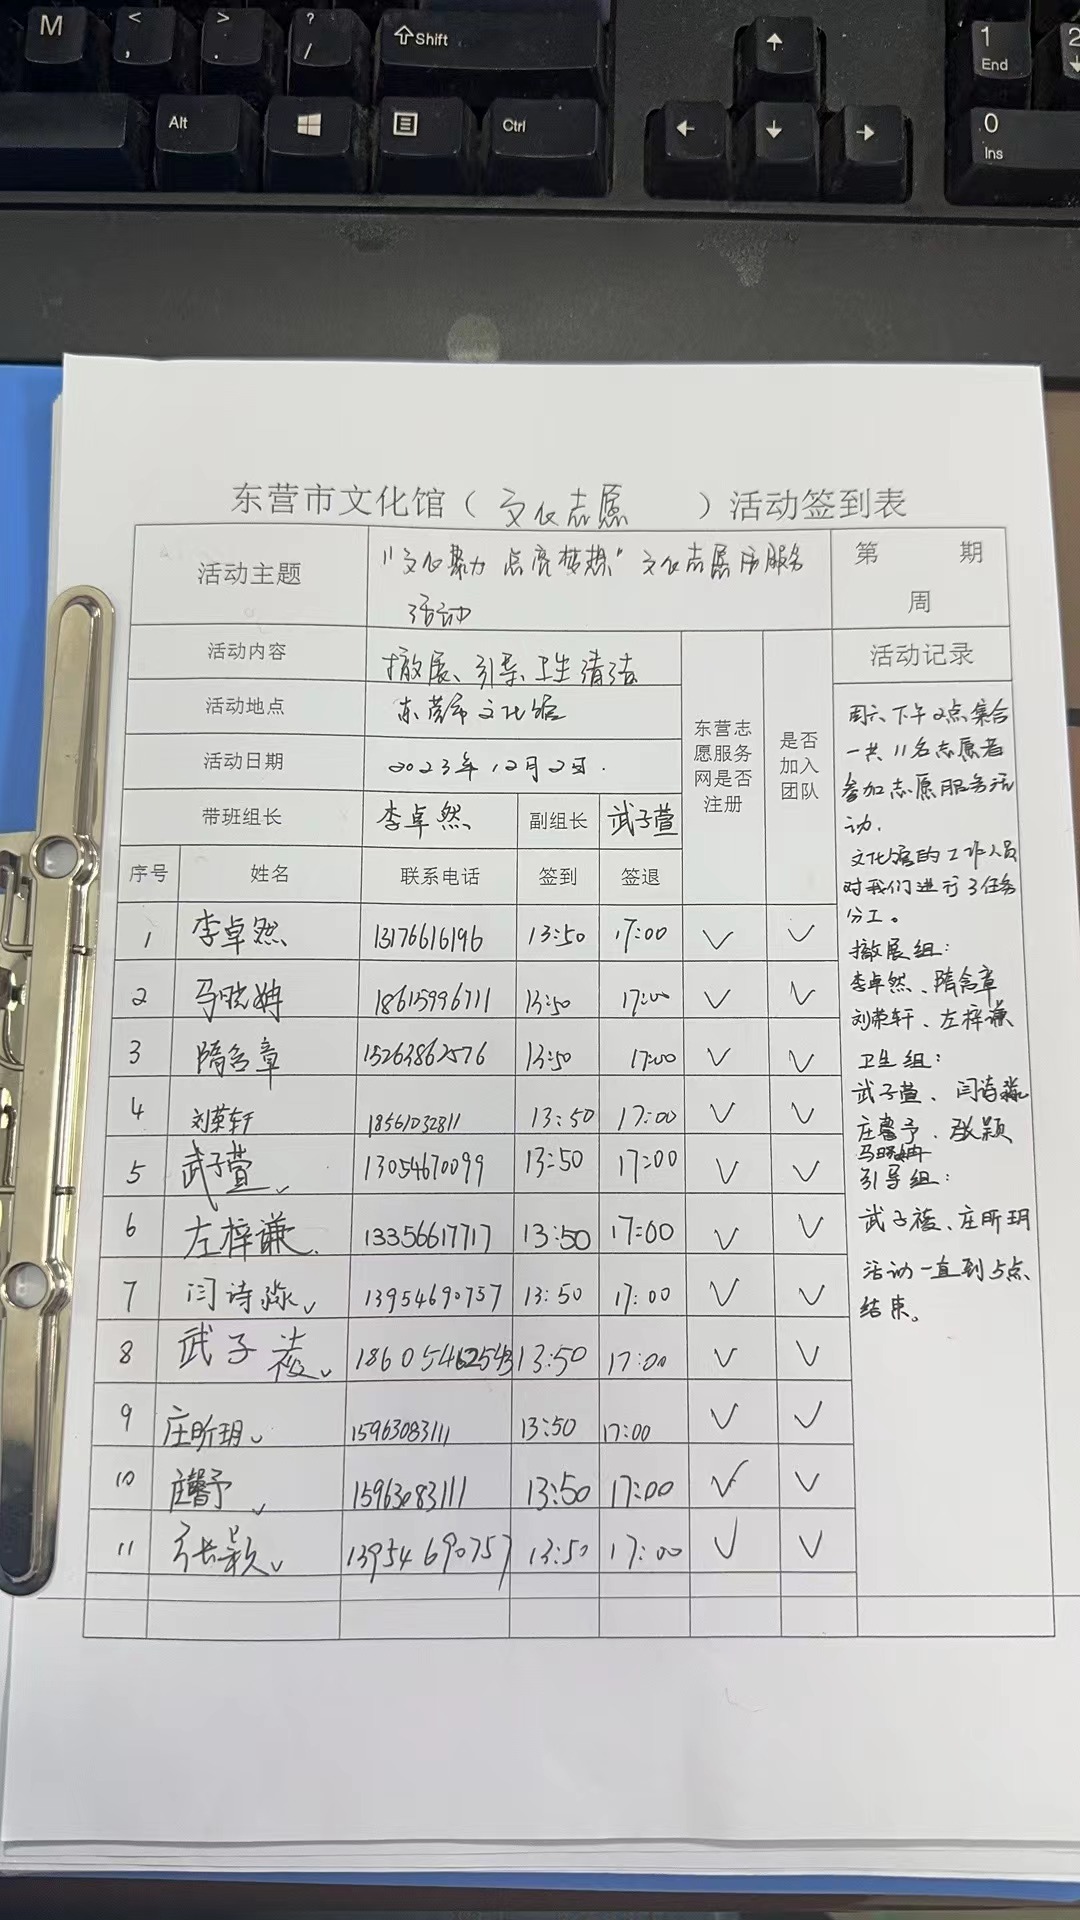 M < , > . ? / Shift 1 End 2
Alt Ctrl 0 Ins
东营市文化馆（ 文化志愿 ）活动签到表
活动主题 "文化聚力 点亮梦想"文化志愿者服务 第 期
活动 周
活动内容 撤展、引导、卫生清洁 活动记录
活动地点 东营市文化馆
活动日期 2023年12月2日.
东营志愿服务网是否注册
是否加入团队
带班组长 李卓然 副组长 武子萱
序号 姓名 联系电话 签到 签退
1 李卓然 13176616196 13:50 17:00 ✓ ✓
2 马晓姌 18615996711 13:50 17:00 ✓ ✓
3 隋含章 15263862576 13:50 17:00 ✓ ✓
4 刘荣轩 18561032811 13:50 17:00 ✓ ✓
5 武子萱 13054670099 13:50 17:00 ✓ ✓
6 左梓谦 13356617717 13:50 17:00 ✓ ✓
7 闫诗淼 13954690757 13:50 17:00 ✓ ✓
8 武子祾 18605462543 13:50 17:00 ✓ ✓
9 庄昕玥 15963083111 13:50 17:00 ✓ ✓
10 庄馨予 15963083111 13:50 17:00 ✓ ✓
11 张颖 13954690757 13:50 17:00 ✓ ✓
周六下午2点集合
一共11名志愿者
参加志愿服务活
动.
文化馆的工作人员
对我们进行了任务
分工。
撤展组：
李卓然、隋含章
刘荣轩、左梓谦
卫生组：
武子萱、闫诗淼
庄馨予、张颖
马晓姌
引导组：
武子祾、庄昕玥
活动一直到5点
结束。